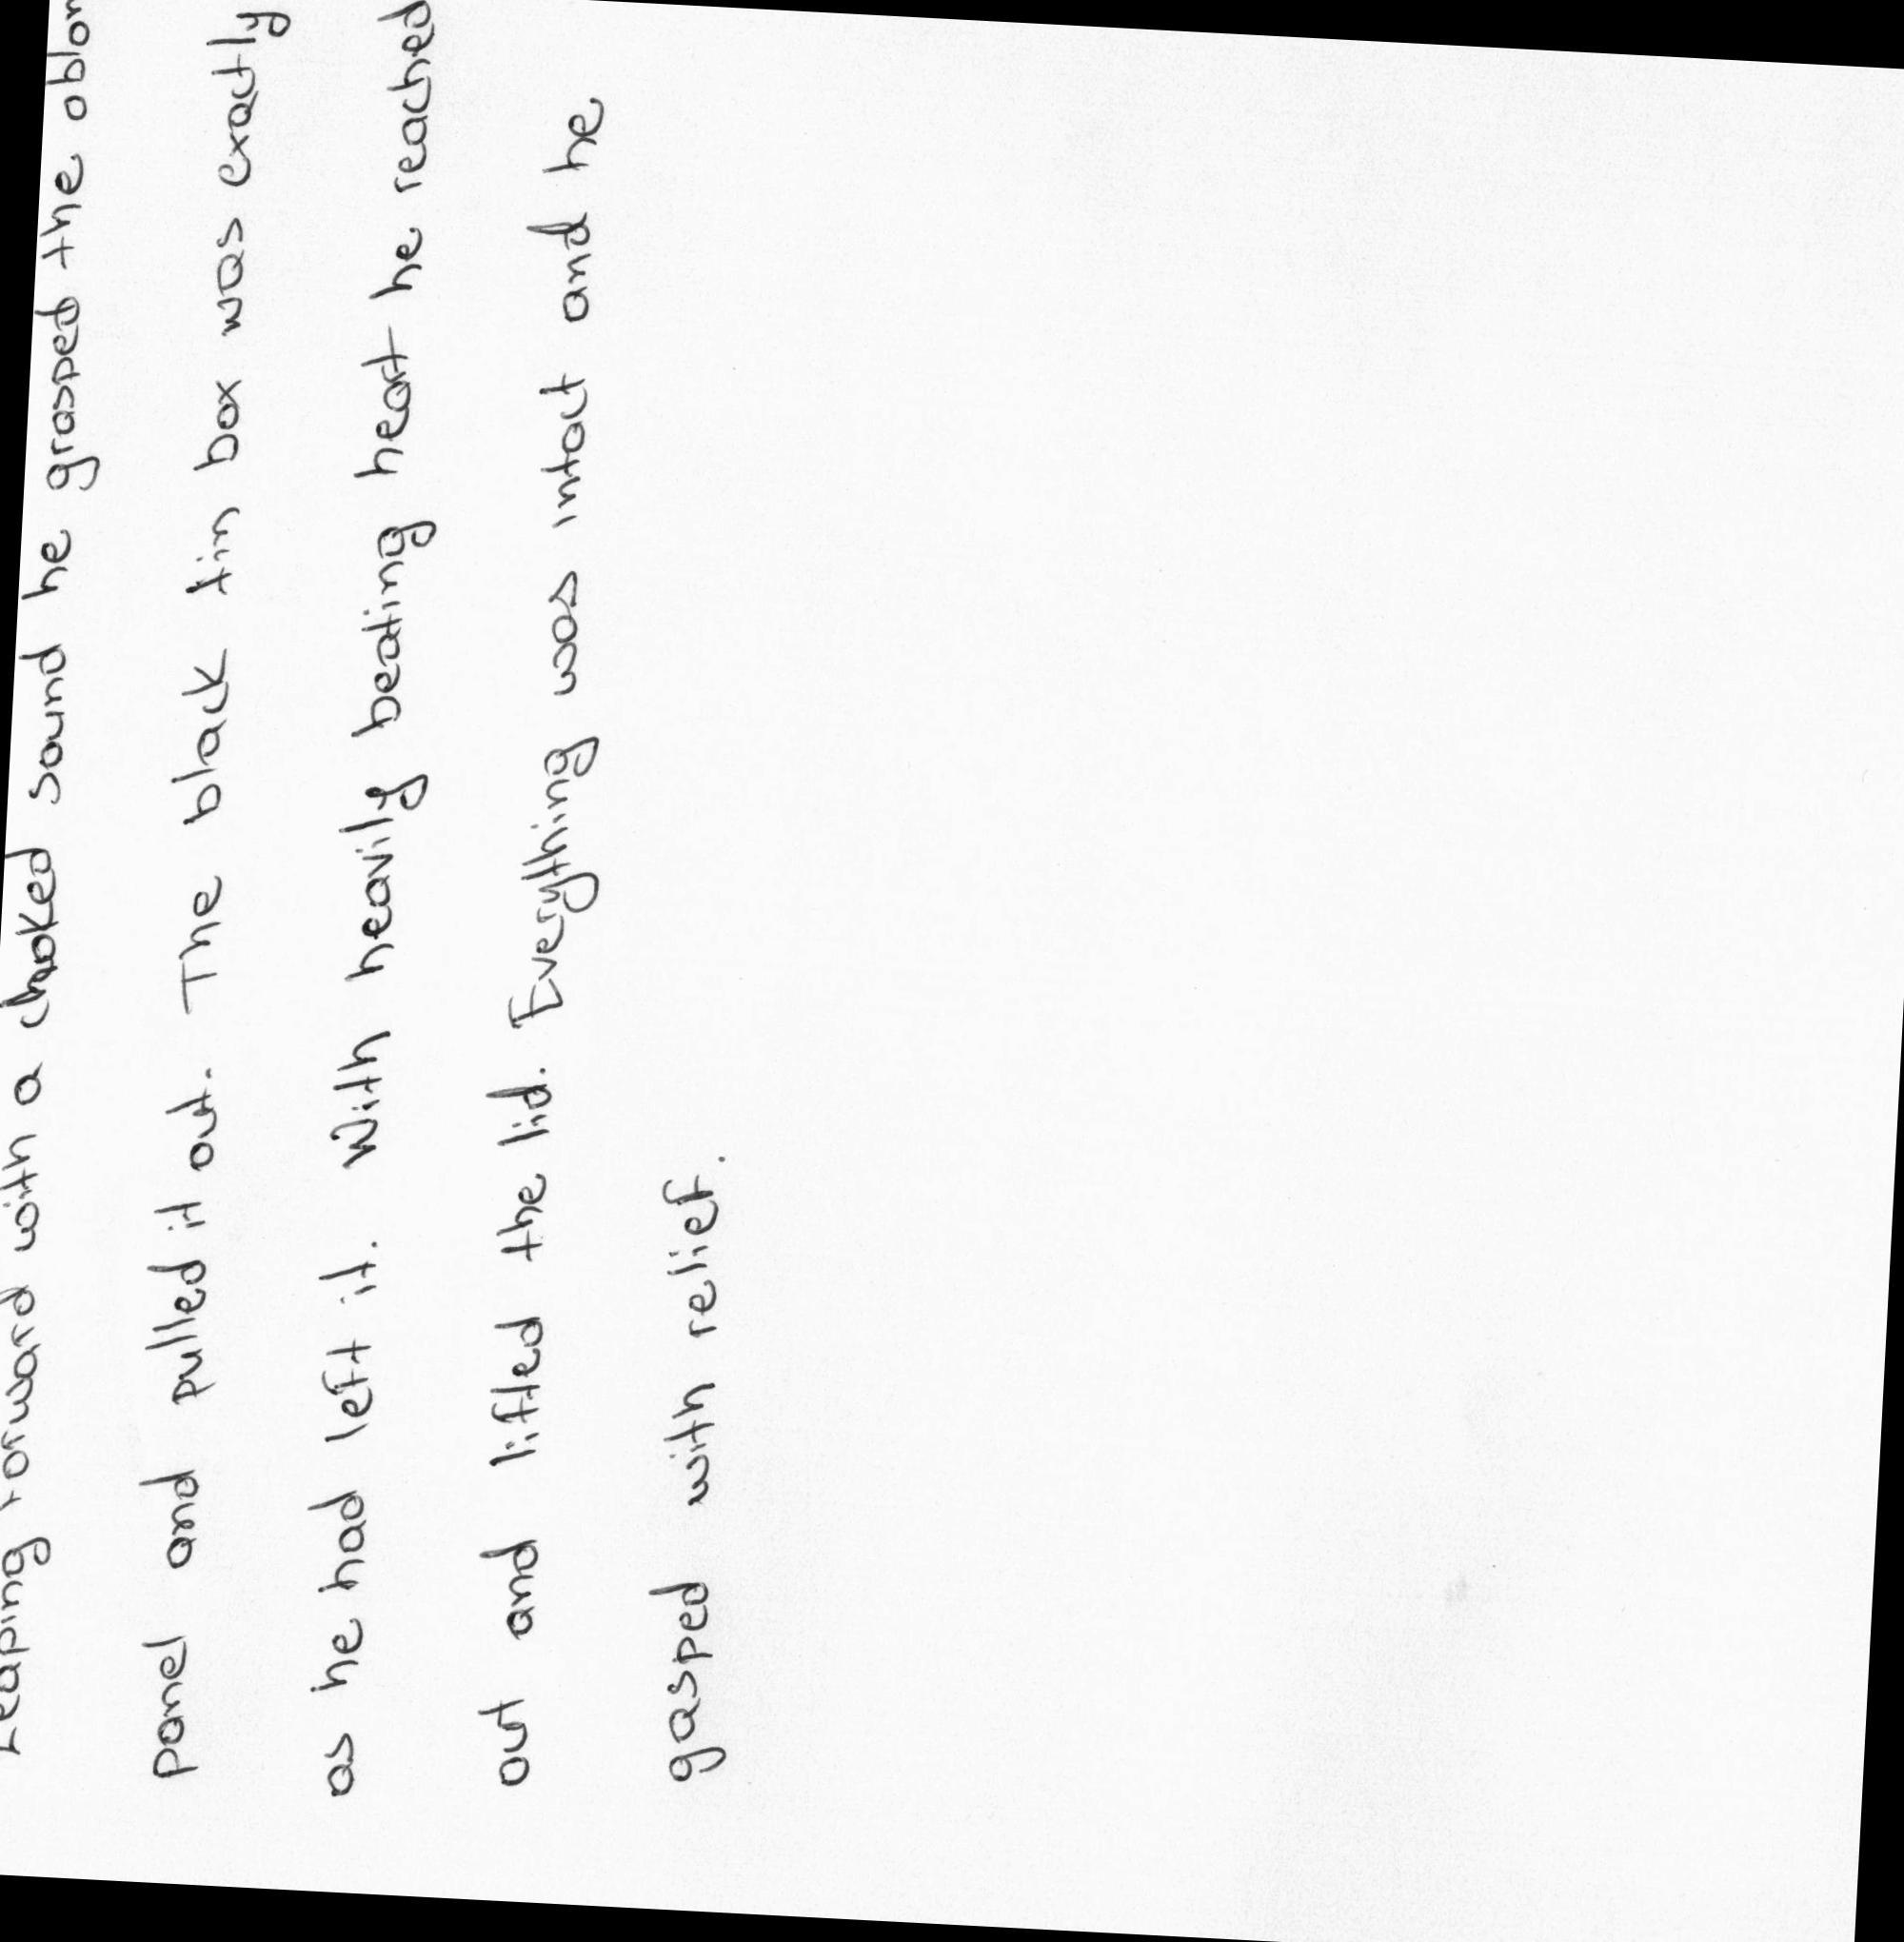 Leaping forward with a choked sound he grasped the
panel and pulled it out. The black tin box was exactly
as he had left it. With heavily beating heart he reached
out and lifted the lid. Everything was intact and he
gasped with relief.